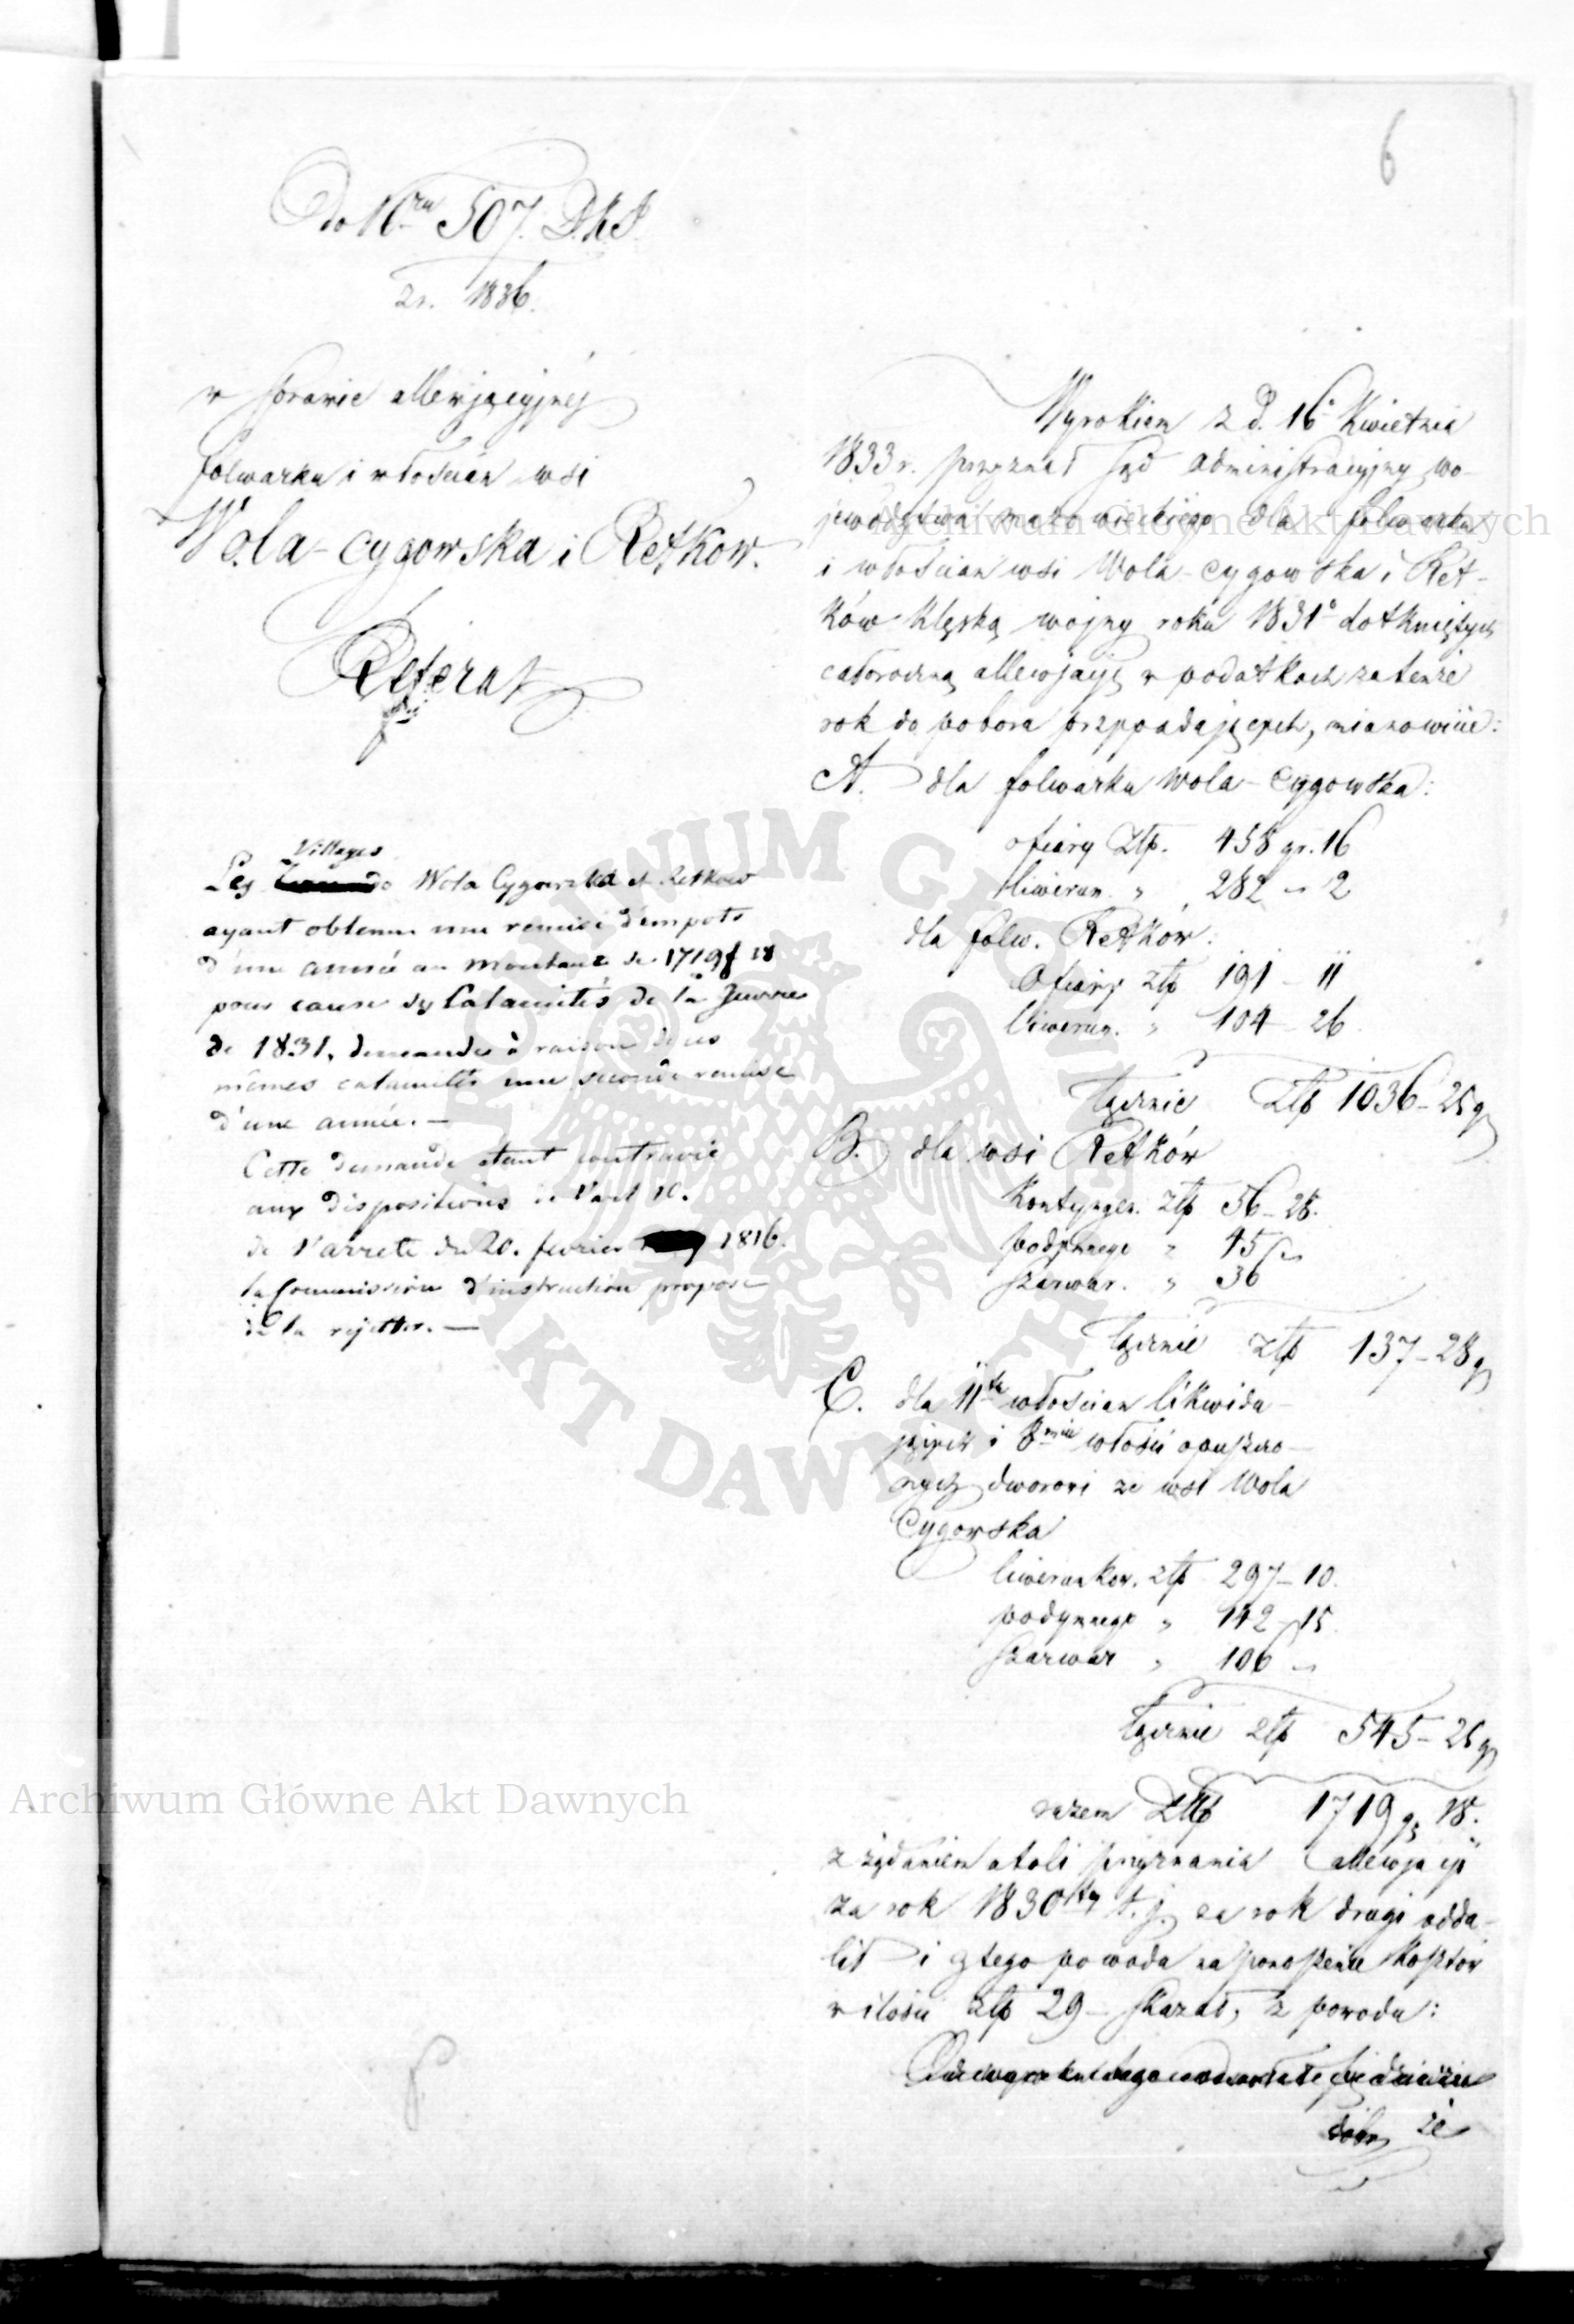 6
Do Nru 507. D.K.P.
z r. 1836.
w sprawie allewjacyjnéj
folwarku i włościan wsi
Wola-cygowska i Retków.
Referat
Villages
Les Wola Cygowska et Retkow
ayant obtenu une remise d'empots
d'une année au montant de 1719 f 18
pour cause des Calamités de la guerre
de 1831, demandes à raison de ces
mêmes calamités une seconde remise
d'une année. —
Cette demande étant contraire
aux dispositions de l'art 10.
de l'arrete du 20. fevrier 1816.
la Commission d'instruction propose
de la rejetter. —
Wyrokiem z d. 16° Kwietnia
1833 r. przyznał sąd administracyjny wo-
jewództwa mazowieckiego dla folwarku
i włościan wsi Wola-cygowska i Ret-
ków klęską wojny roku 1831° dotkniętych
całoroczną allewjacyę w podatkach za tenże
rok do poboru przypadających, mianowicie:
A. dla folwarku Wola-Cygowska:
ofiary Złp. 458 gr. 16
liweran. " 282 – 2
dla folw. Retków:
Ofiary złp 191 – 11
liweran. " 104 – 26
łącznie Złp 1036 – 25 g
B. dla wsi Retków
Kontyngen. złp 56 – 28.
podymnego " 45
szarwar. " 36
łącznie złp 137 – 28 g
C. dla 11tu włościan likwidu-
jących i 8miu włości opuszczo-
nych dworowi ze wsi Wola
Cygowska
liwerunkow. złp 297 – 10.
podymnego " 142 – 15
szarwar " 106 –
łącznie złp 545 – 25 g
razem Złp 1719 gr 18.
z żądaniem atoli przyznania allewjacyi
za rok 1830sty t. j. za rok drugi odda-
lił i z tego powodu na ponoszenie kosztów
w ilości złp 29 – skazał, z powodu:
że
Archiwum Główne Akt Dawnych
Archiwum Główne Akt Dawnych
ARCHIWUM GŁÓWNE AKT DAWNYCH